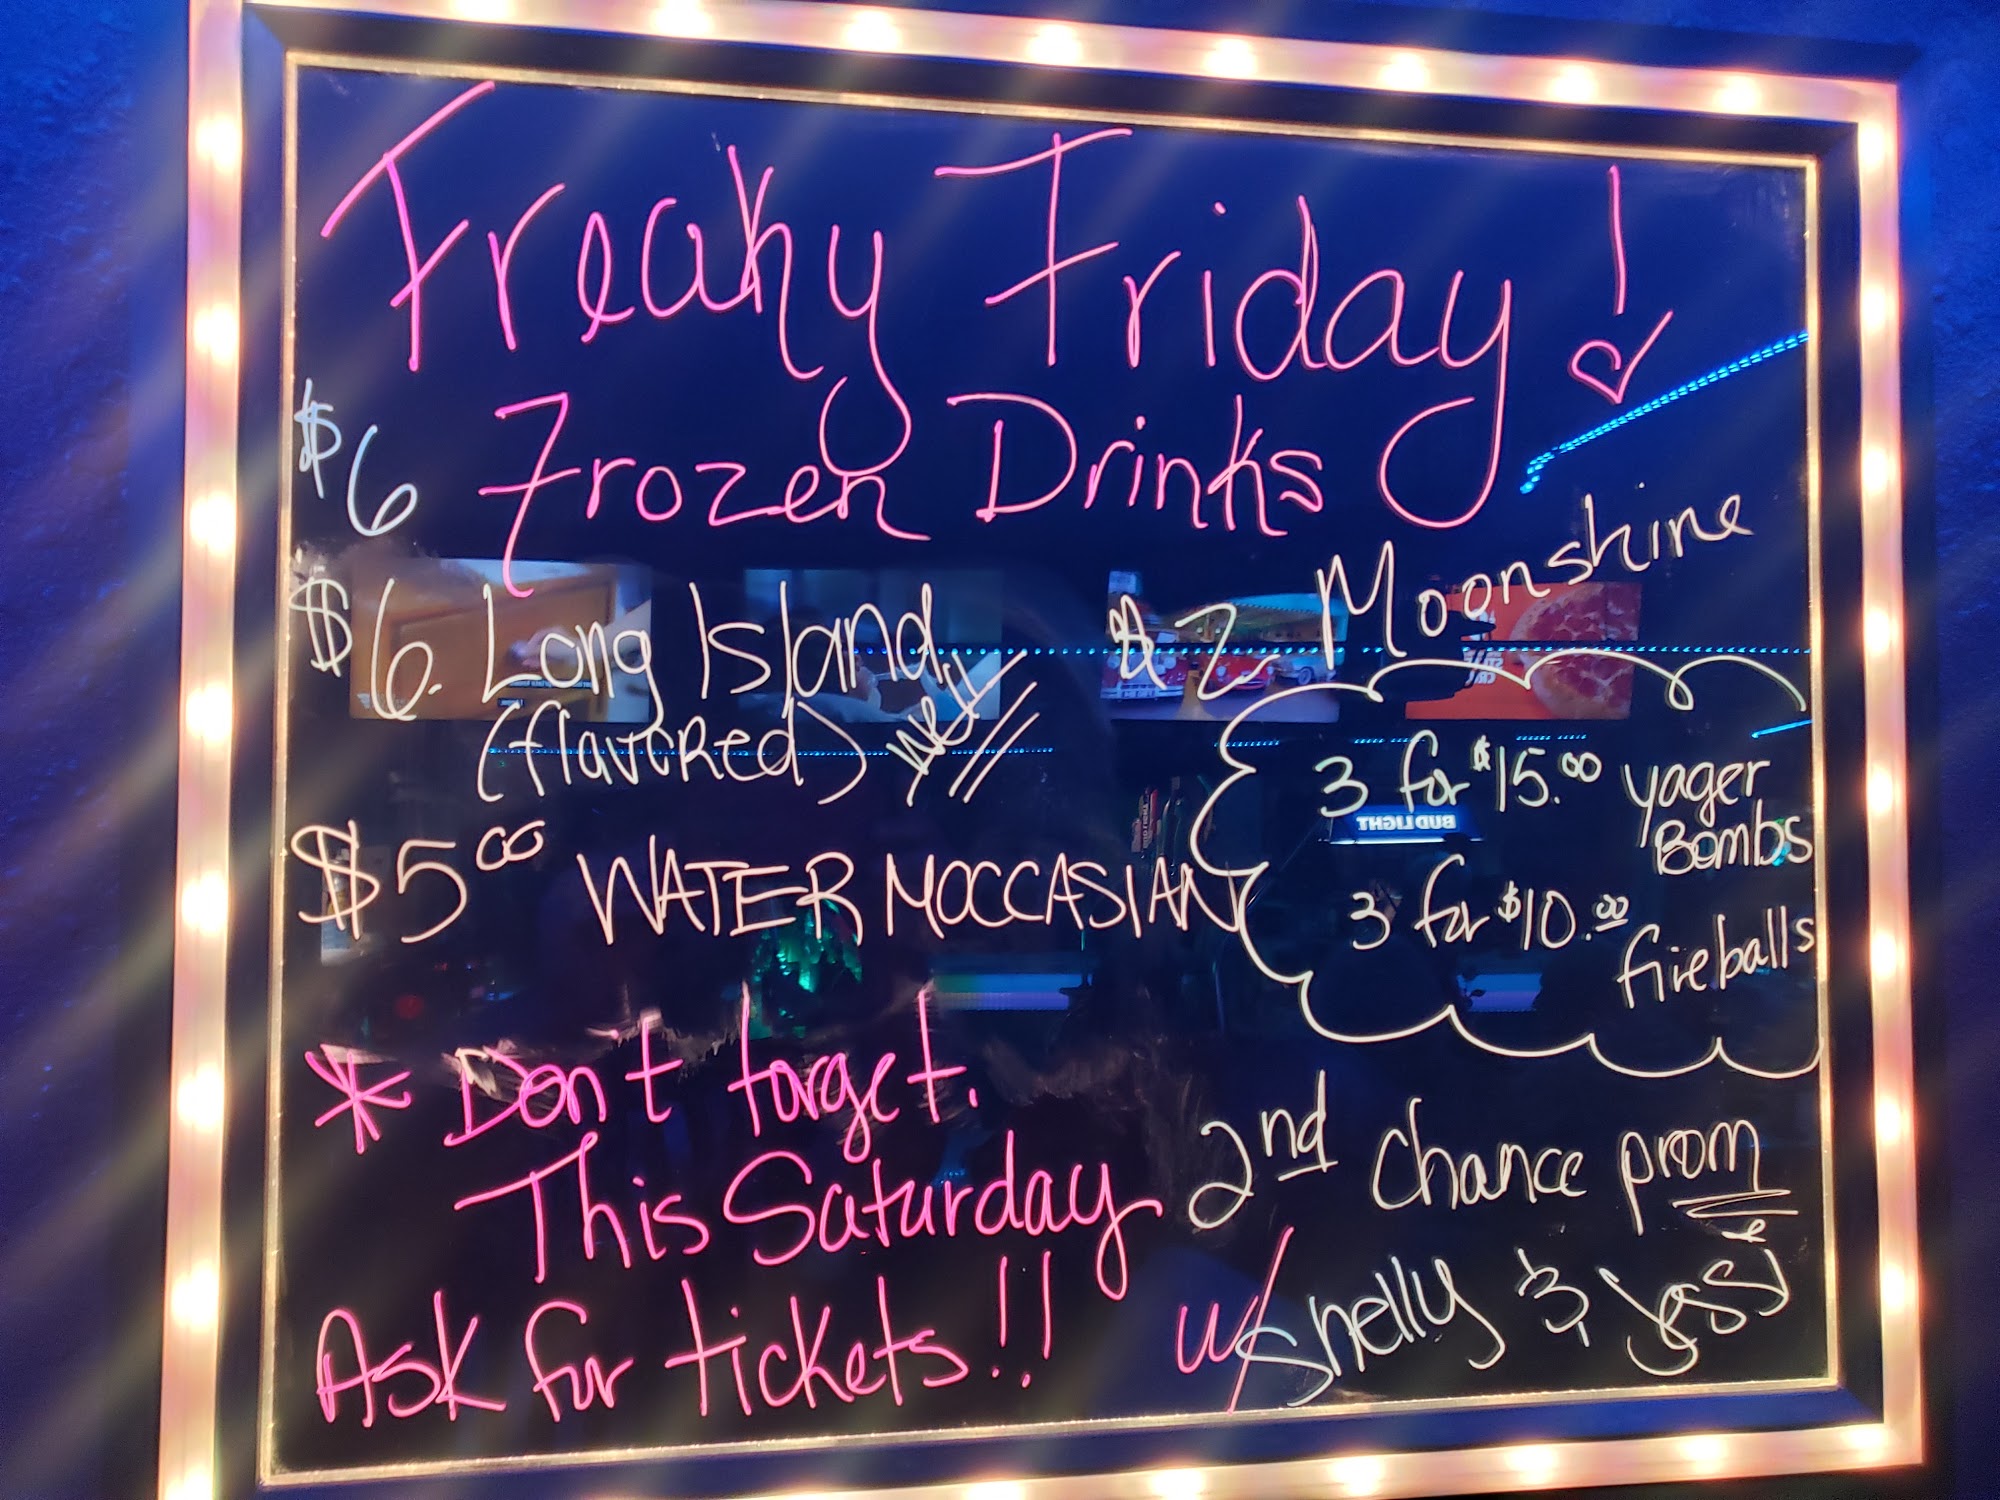 Freaky Friday!
$6 Frozen Drinks
$6. Long Island
(flavored) NEW
$2 Moonshine
3 for $15.00 yager
Bombs
3 for $10.00
fireballs
$5.00 WATER MOCCASIAN
* Don't forget.
This Saturday
Ask for tickets!!
2nd Chance prom
w/ Shelly & Jessi
BUD LIGHT